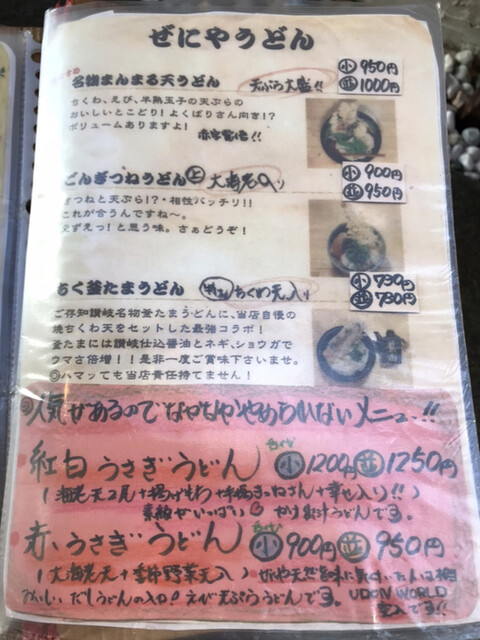 ぜにやうどん
名物まんまる天うどん 天ぷら大盛!! 小 950円
並 1000円
ちくわ、えび、半熟玉子の天ぷらの
おいしいとこどり!よくばりさん向き!?
ボリュームありますよ! 赤字覚悟!!
ごんぎつねうどん 上 大海老入り 小 900円
並 950円
きつねと天ぷら!?・相性バッチリ!!
これが合うんですね〜。
えっ!と思う味。さぁどうぞ!
ちく釜たまうどん ちくわ天入り 小 730円
並 780円
ご存知讃岐名物釜たまうどんに、当店自慢の
焼ちくわ天をセットした最強コラボ!
釜たまには讃岐仕込醤油とネギ、ショウガで
ウマさ倍増!!是非一度ご賞味下さいませ。
◎ハマッても当店責任持てません!
人気があるのでなかなかやめられないメニュー!!
紅白うさぎうどん 小 1200円 並 1250円
(海老天2尾+揚げもち+手焼きつねさん+幸せ入り!!)
うどんです。
赤いうさぎうどん 小 900円 並 950円
(大海老天+季節野菜天入)
だしうどんの入口!えび天ぷらうどんです。 UDON WORLD